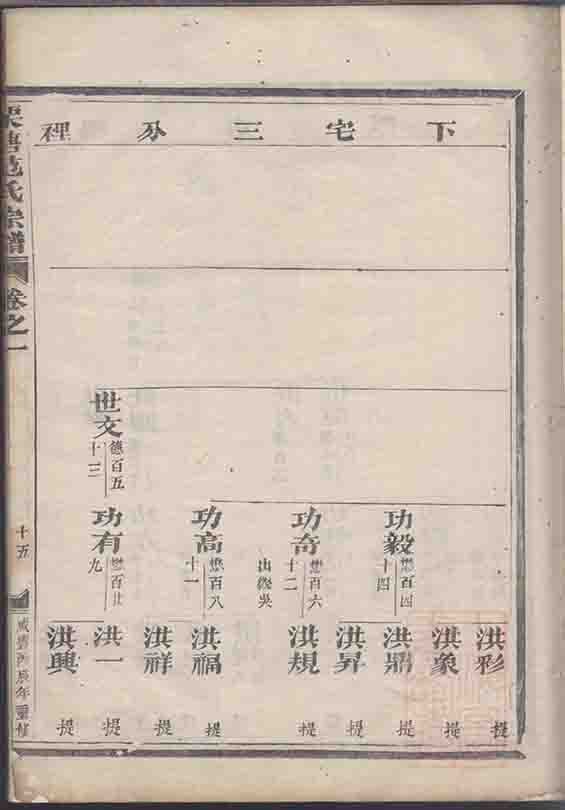 下宅三分裡
洪彩 提
洪象 提
功毅 懋百四十四
洪鼎 提
洪昇 提
功奇 懋百六十二 出繼吳
洪規 提
功高 懋百八十一
洪福 提
洪祥 提
世文 德百五十三
功有 懋百廿九
洪一 提
洪興 提
范氏宗譜 卷之一 十五 咸豐丙辰年重修